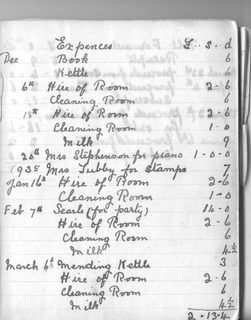 Expences £ - s - d
Dec Book 6
Kettle 6
6th Hire of Room 2 - 6
Cleaning Room 6
13th Hire of Room 2 - 6
Cleaning Room 1 - 0
Milk 9
20th Mrs Stephenson for piano 1 - 0 - 0
1935 Mrs Tubby for Stamps 7
Jan 16th Hire of Room 2 - 6
Cleaning Room 1 - 0
Feb 7th Seats (for party) 14 - 0
Hire of Room 2 - 6
Cleaning Room 6
Milk 4½
March 6th Mending Kettle 3
Hire of Room 2 - 6
Cleaning Room 6
Milk 4½
2 - 13 - 4